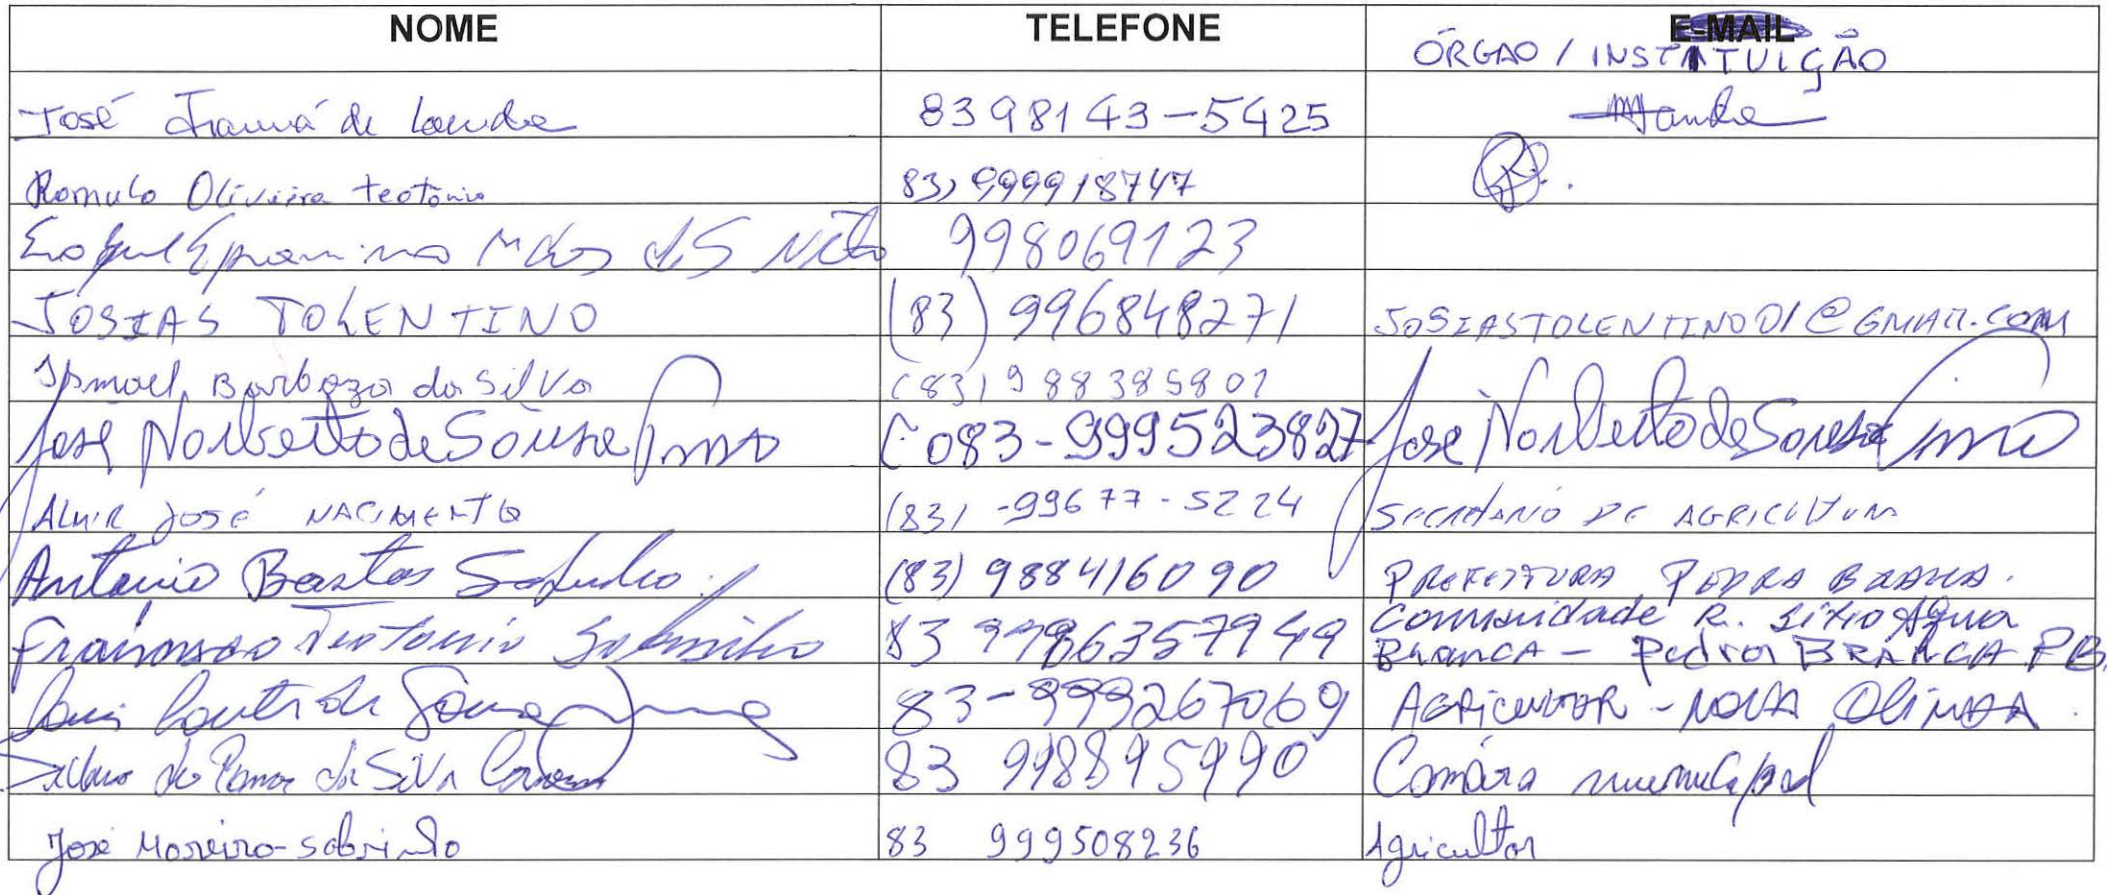 NOME TELEFONE E-MAIL
ÓRGAO / INSTITUIÇÃO
José de 83 98143-5425
Romulo Oliviera Teotônio 83) 999918747
Neto 998069123
JOSIAS TOLENTINO (83) 996848271 JOSIASTOLENTINO01@GMAIL.COM
Ismael Barboza da Silva (83) 988385801
José Norberto de Sousa Primo (083-999523827 José Norberto de Sousa Primo
ALMIR JOSÉ NACIMENTO (83) -99677-5224 SECRETÁRIO DE AGRICULTURA
Antonio Bastos Sobrinho (83) 988416090 PREFEITURA PEDRA BRANCA.
Comunidade R. Sítio Água
Francisco Teotonio Sobrinho 83 9986357949 BRANCA - Pedra BRANCA PB.
de Sousa 83-999267069 AGRICULTOR - NOVA OLINDA.
da Silva 83 998895990 Camára municipal
José Moreira-Sobrinho 83 999508236 Agricultor